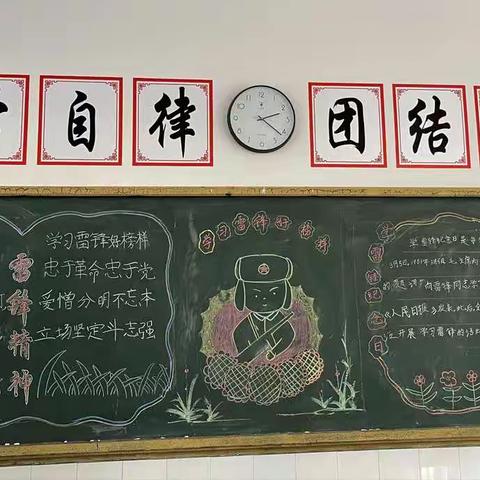 自 律 团 结
雷锋精神
学习雷锋好榜样
忠于革命忠于党
爱憎分明不忘本
立场坚定斗志强
学习雷锋好榜样
学雷锋纪念日
学雷锋纪念日是
3月5日,
向雷锋同志学
《人民日报》发表
开展学习雷锋的活